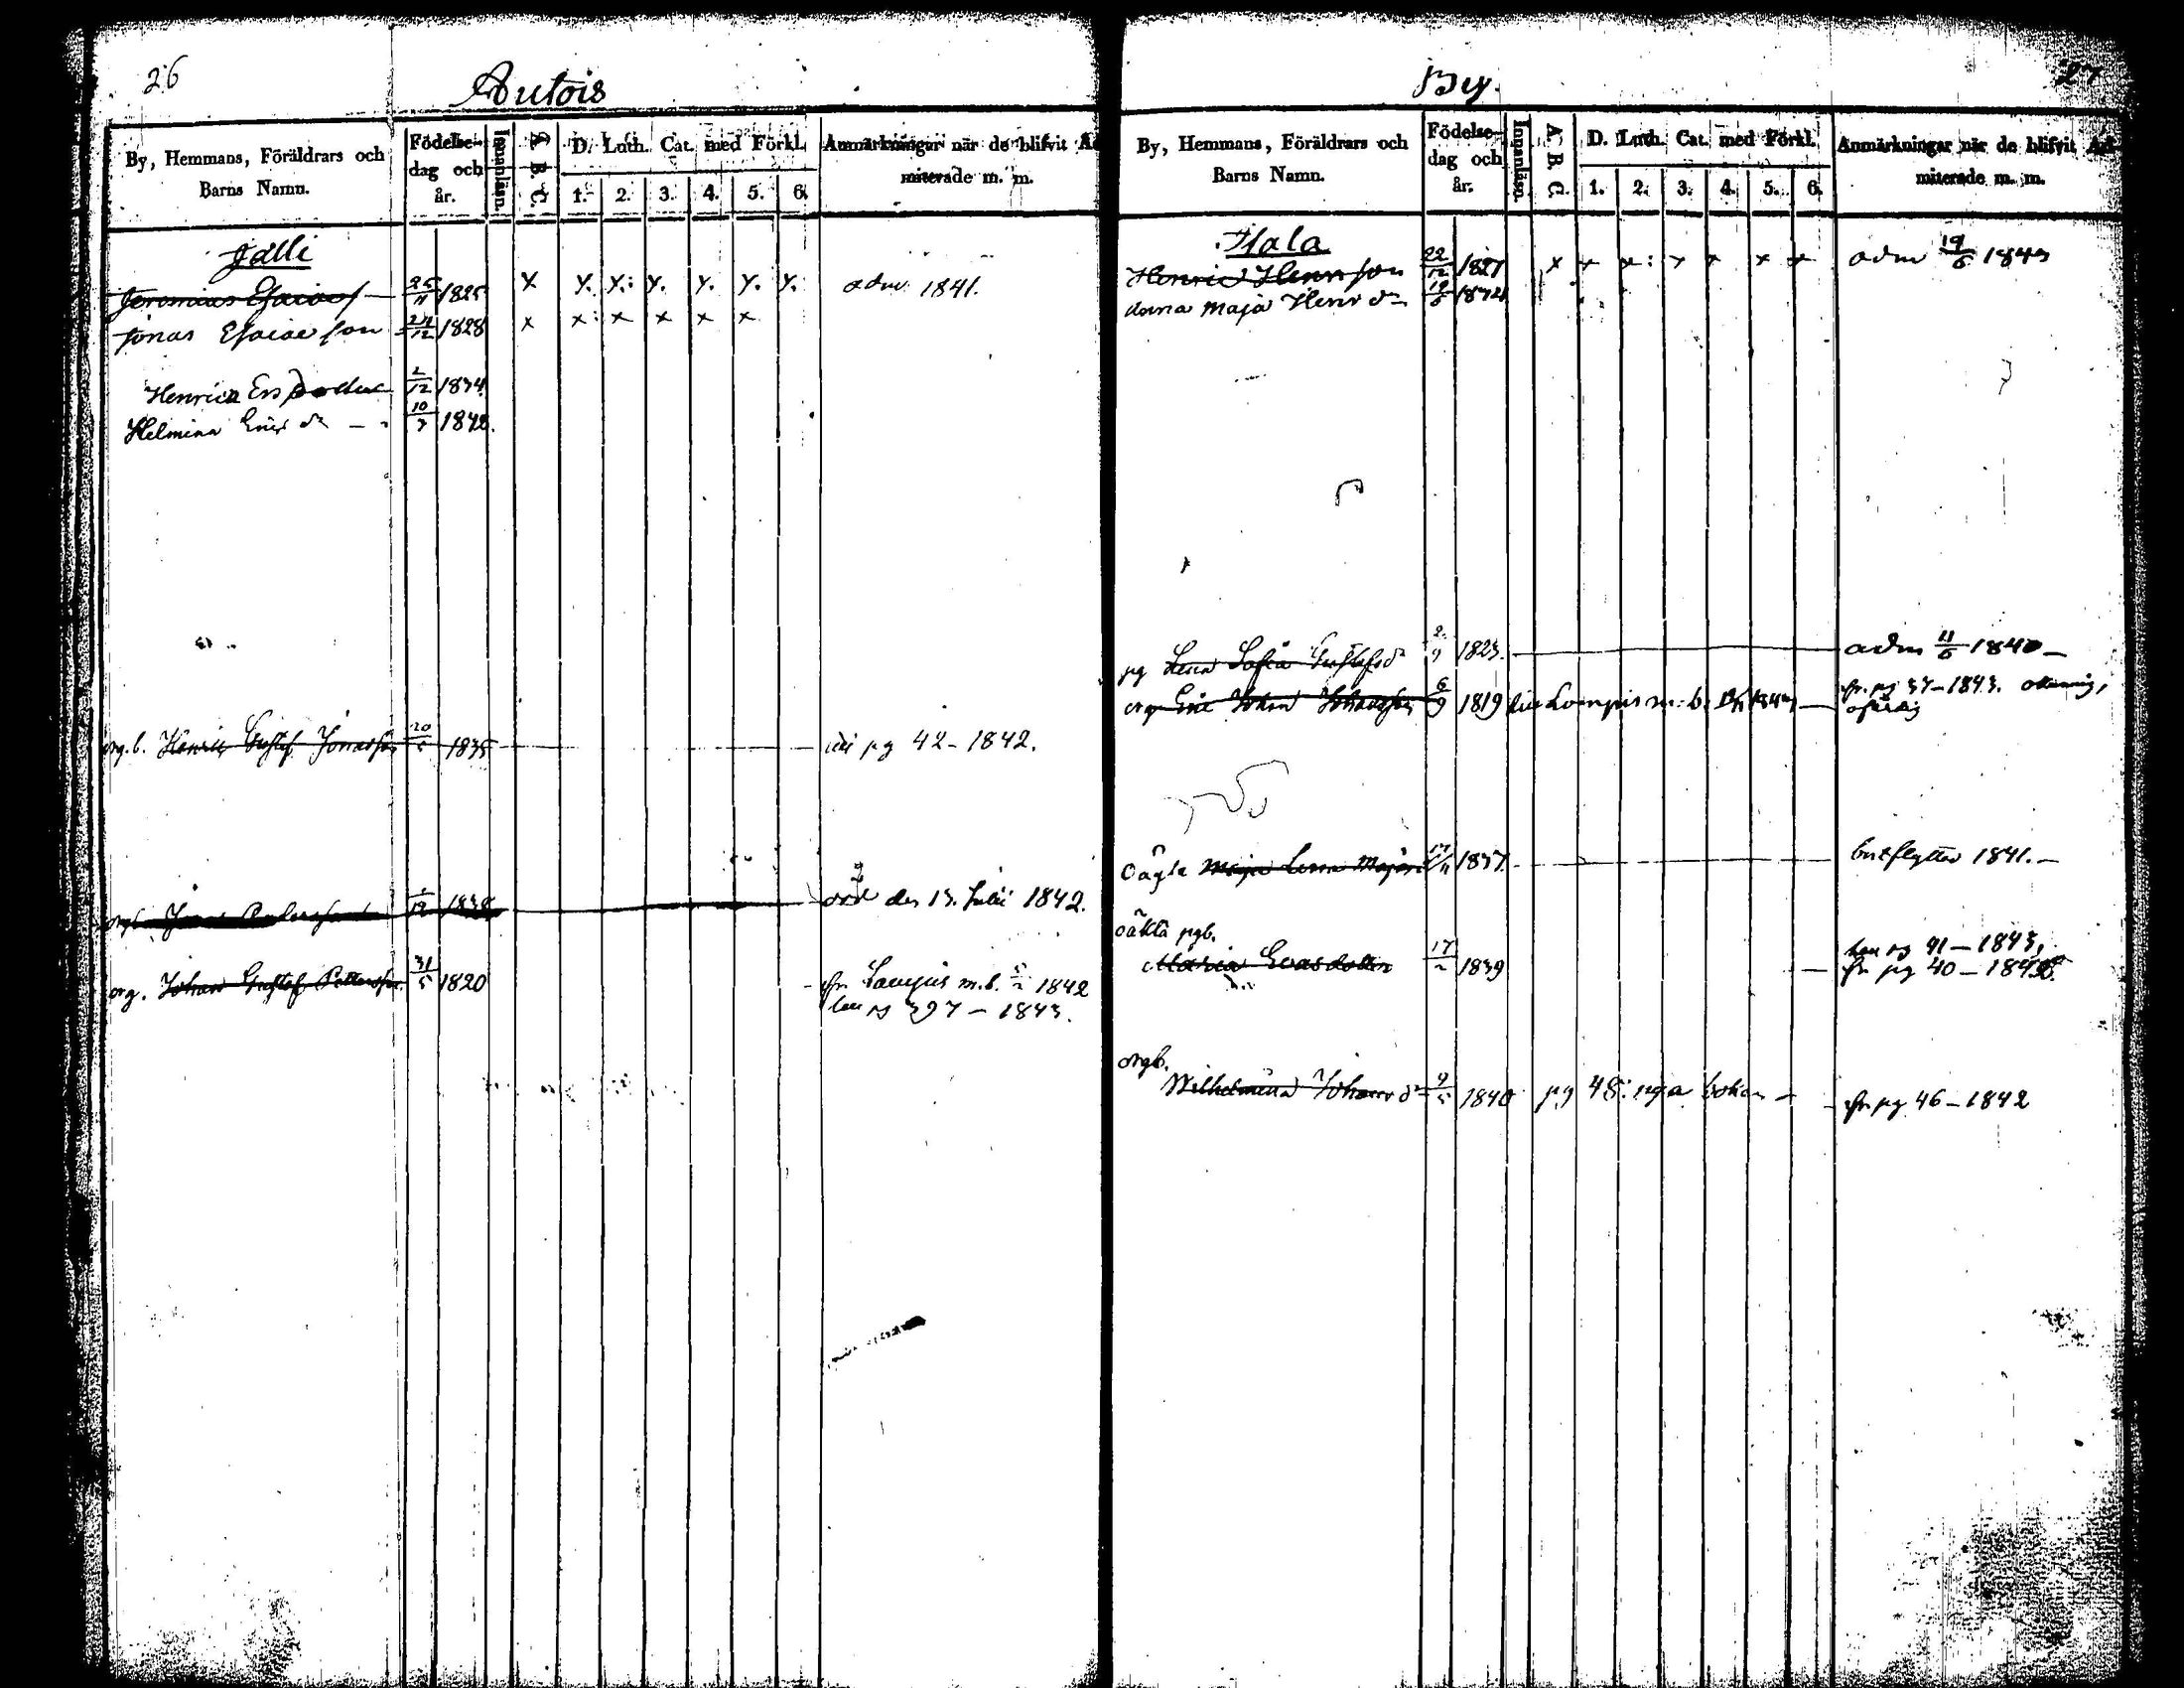 26
Autois
By, Hemmans, Föräldrars och
Barns Namn.
Födelse-
dag och
år.
Innanläsn.
A. B. C.
D. Luth. Cat. med Förkl.
1. 2. 3. 4. 5. 6.
Anmärkningar när de blifvit Ad
miterade m. m.
Jalli
Jeremias Esaias 25/11 1825 x y. y.: y. y. y. y. adm 1841.
Jonas Esaiae son 12 1828 x x : x x x x
Henrica Ers dotter 2/12 1834.
Helmina Eriks dr 10/7 1842.
Henric Gustaf Jonasson 20/5 1835 pg 42 - 1842.
1/12 1838 död den 13. Julii 1842.
Johan Gustaf Pettersson 31/5 1820 fr. Lampis m.b. 1842
pg 397 - 1843.
By.
27
By, Hemmans, Föräldrars och
Barns Namn.
Födelse-
dag och
år.
Innanläsn.
A. B. C.
D. Luth. Cat. med Förkl.
1. 2. 3. 4. 5. 6.
Anmärkningar när de blifvit Ad-
miterade m. m.
Hala
Henric Henr son 22/12 1827 x x x : x x x x adm 19/6 1843
Maja Henr dr 19/6 1834
pg Lena Sofia Gustafsdr 2/9 1823. adm 11/6 1840
Eric Johan Johansson 6/9 1819 Lampis m.b. fr. pg 37 - 1843.
ofärdig
Oägta Maja Lena Majas 1837. bortflyttad 1841.
oäkta pgb.
Maria Evasdotter 17/2 1839 pg 41 - 1843,
fr. pg 40 - 1842.
Wilhelmina Johans dr 9/5 1840 pg 48: nya boken fr. pg 46 - 1842